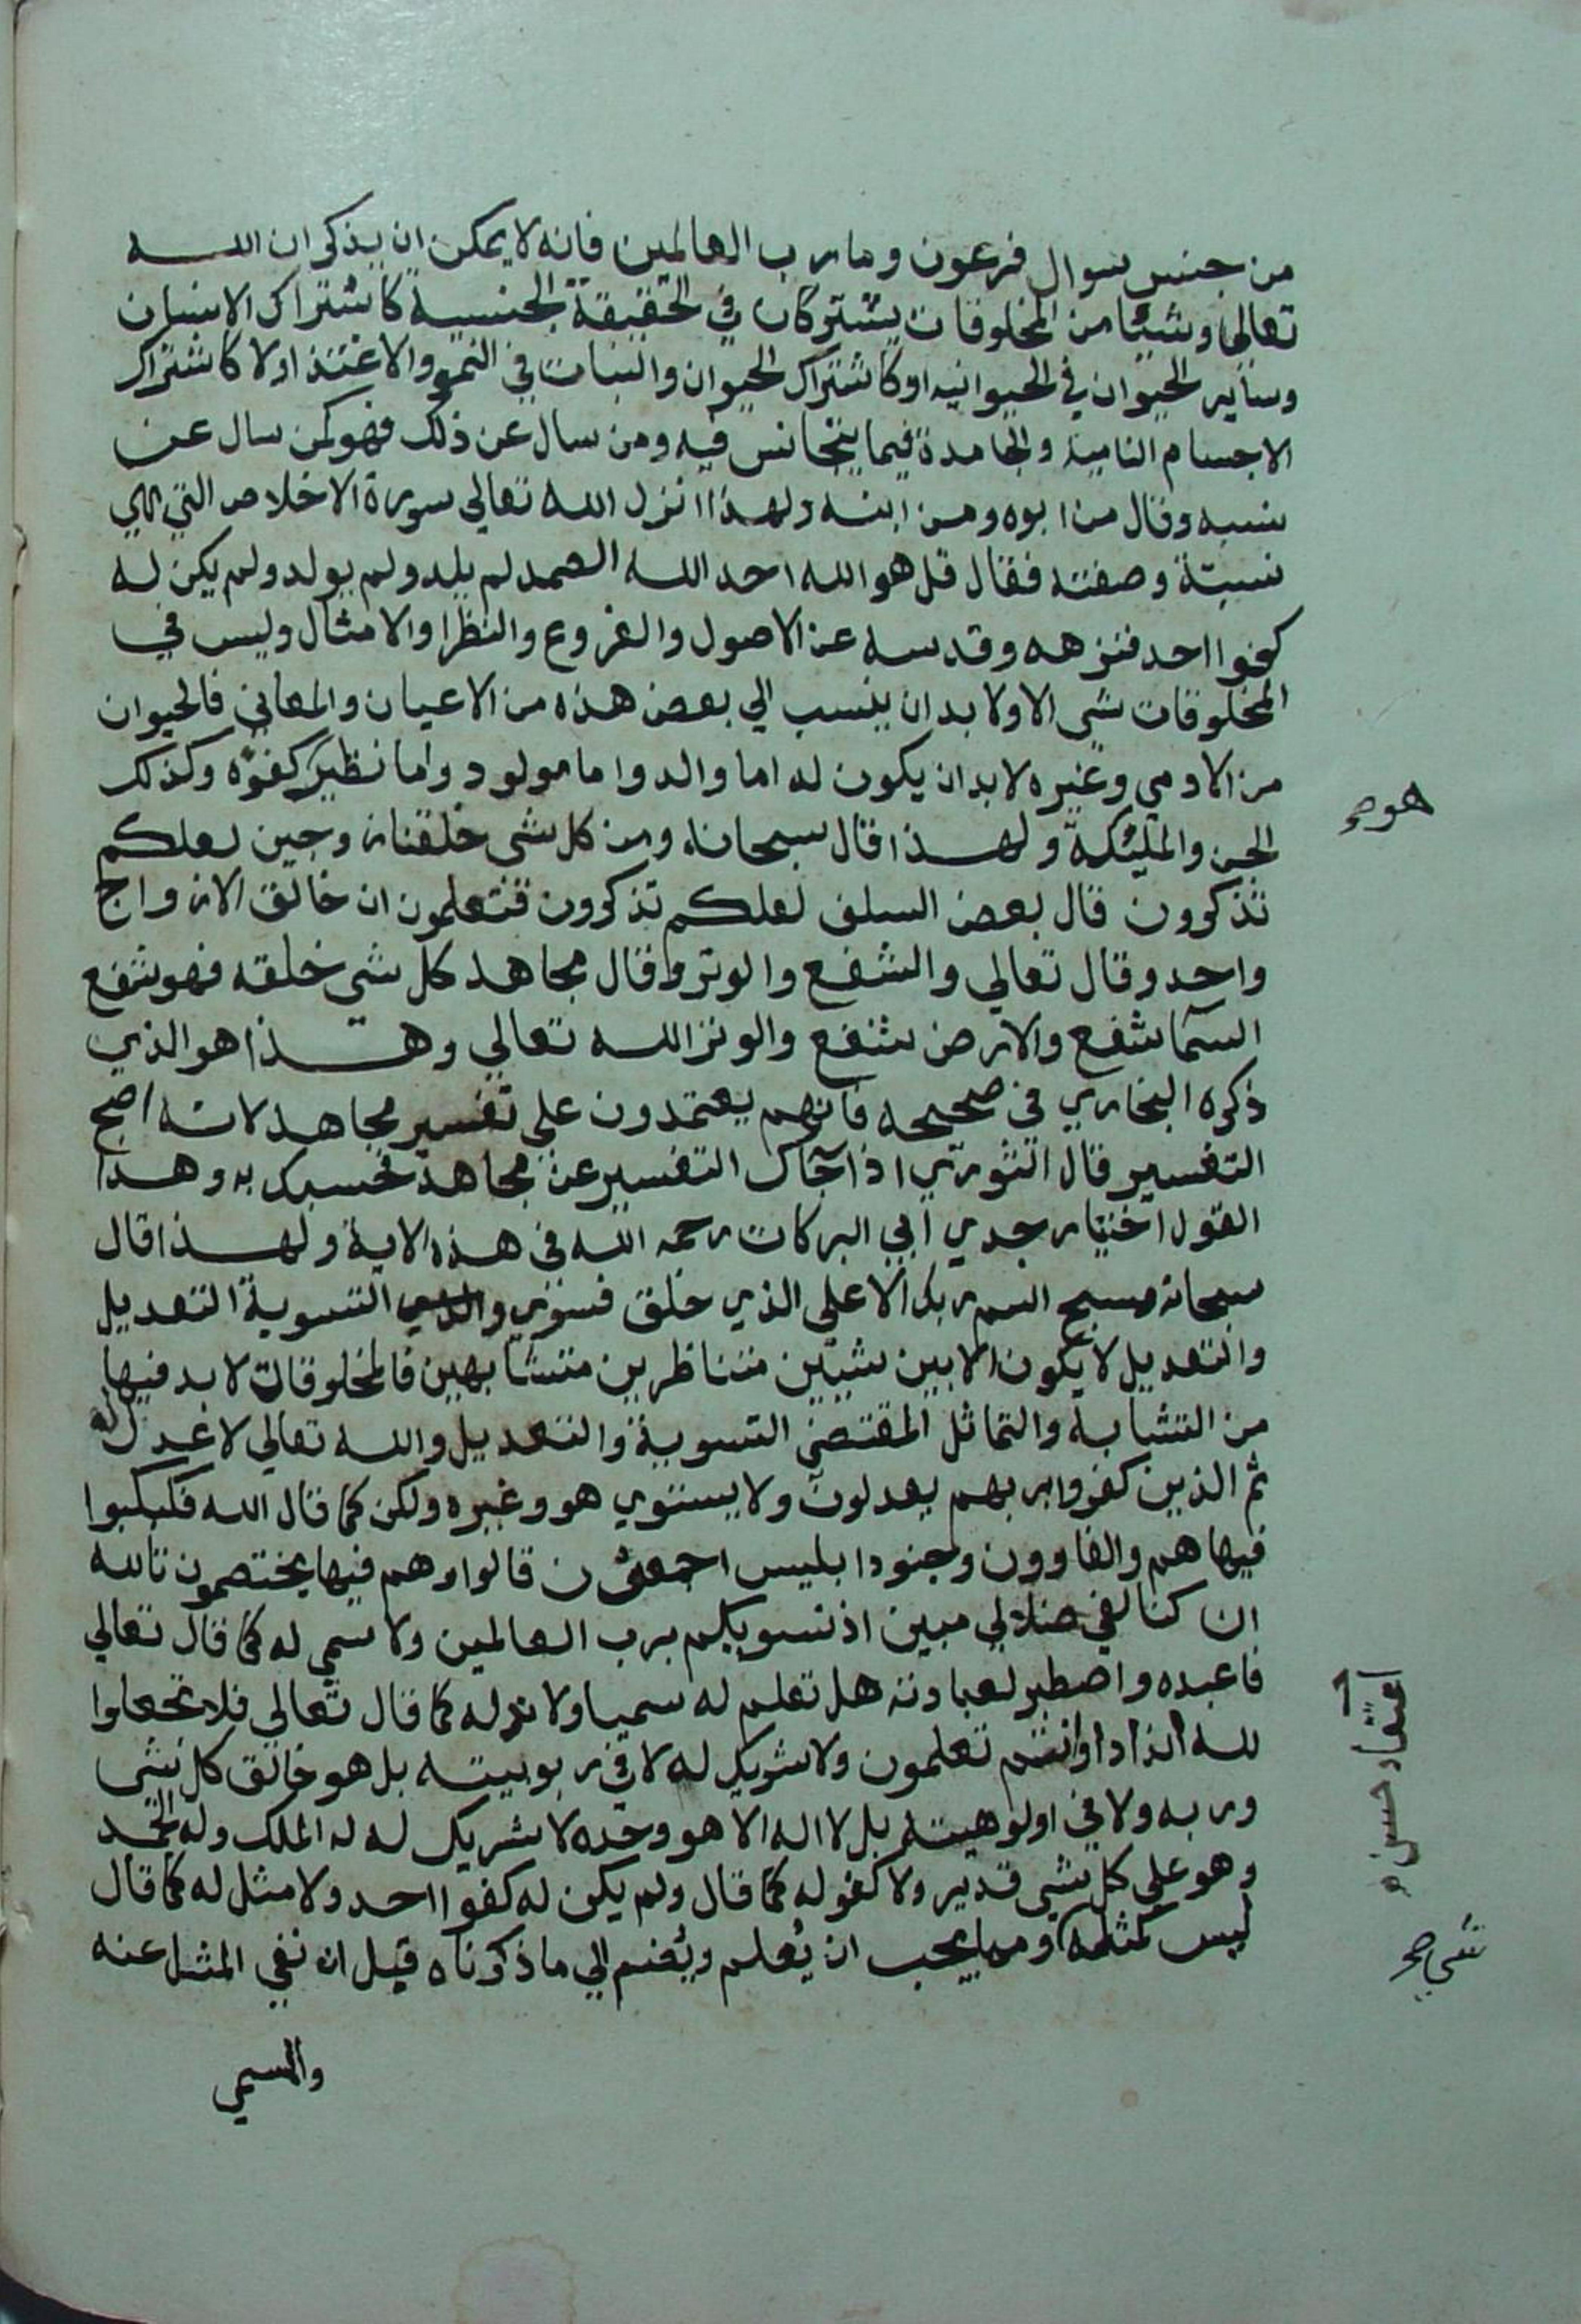 من جنس سوال فرعون وما رب العالمين فانه لا يمكن ان يذكر ان الله
تعالى وشيئا من المخلوقات يشتركان في الحقيقة الجنسية كاشتراك الانسان
وساير الحيوان في الحيوانيه او كاشتراك الحيوان والنبات في النمو والاغتذا ولا كاشتراك
الاجسام النامية والجامدة فيما يتجانس فيه ومن سال عن ذلك فهو كمن سال عن
نسبه وقال من ابوه ومن ابنه ولهذا انزل الله تعالى سورة الاخلاص التي هي
نسبتة وصفته فقال قل هو الله احد الله الصمد لم يلد ولم يولد ولم يكن له
كفوا احد فنزهه وقدسه عن الاصول والفروع والنظرا والامثال وليس في
المخلوقات شي الا ولا بد ان ينسب الي بعض هذه من الاعيان والمعاني فالحيوان
من الادمي وغيره لا بد ان يكون له اما والد واما مولود واما نظير كفوه وكذلك
هو صح
الجن والمليكة ولهذا قال سبحانه ومن كل شي خلقنا زوجين لعلكم
تذكرون قال بعض السلف لعلكم تذكرون فتعلمون ان خالق الازواج
واحد وقال تعالي والشفع والوتر وقال مجاهد كل شي خلقه فهو شفع
السما شفع والارض شفع والوتر الله تعالي وهذا هو الذي
ذكره البخاري في صحيحه فانهم يعتمدون علي تفسير مجاهد لانه اصح
التفسير قال الثوري اذا جاك التفسير عن مجاهد فحسبك به وهذا
القول اختيار جدي ابي البركات رحمه الله في هذه الاية ولهذا قال
سبحانه سبح اسم ربك الاعلى الذي خلق فسوي والتسوية التعديل
والتعديل لا يكون الا بين شيئين متناظرين متشابهين فالمخلوقات لا بد فيها
من التشابه والتماثل المقتضي التسوية والتعديل والله تعالي لا عدل له
ثم الذين كفروا بربهم يعدلون ولا يستوي هو وغيره ولكن كما قال الله فكبكبوا
فيها هم والغاوون وجنود ابليس اجمعون قالوا وهم فيها يختصمون تالله
ان كنا لفي ضلال مبين اذ نسويكم برب العالمين ولا سمي له كما قال تعالي
فاعبده واصطبر لعبادته هل تعلم له سميا ولا ند له كما قال تعالي فلا تجعلوا
لله اندادا وانتم تعلمون ولا شريك له لا في ربوبيته بل هو خالق كل شي
وربه ولا في اولوهيته بل لا اله الا هو وحده لا شريك له له الملك وله الحمد
اعتقاد حسن
وهو علي كل شي قدير ولا كفو له كما قال ولم يكن له كفوا احد ولا مثل له كما قال
ليس كمثله ومما يجب ان يُعلم ويُضم الي ما ذكرناه قبل ان نفي المثل عنه
شي صح
والسمي